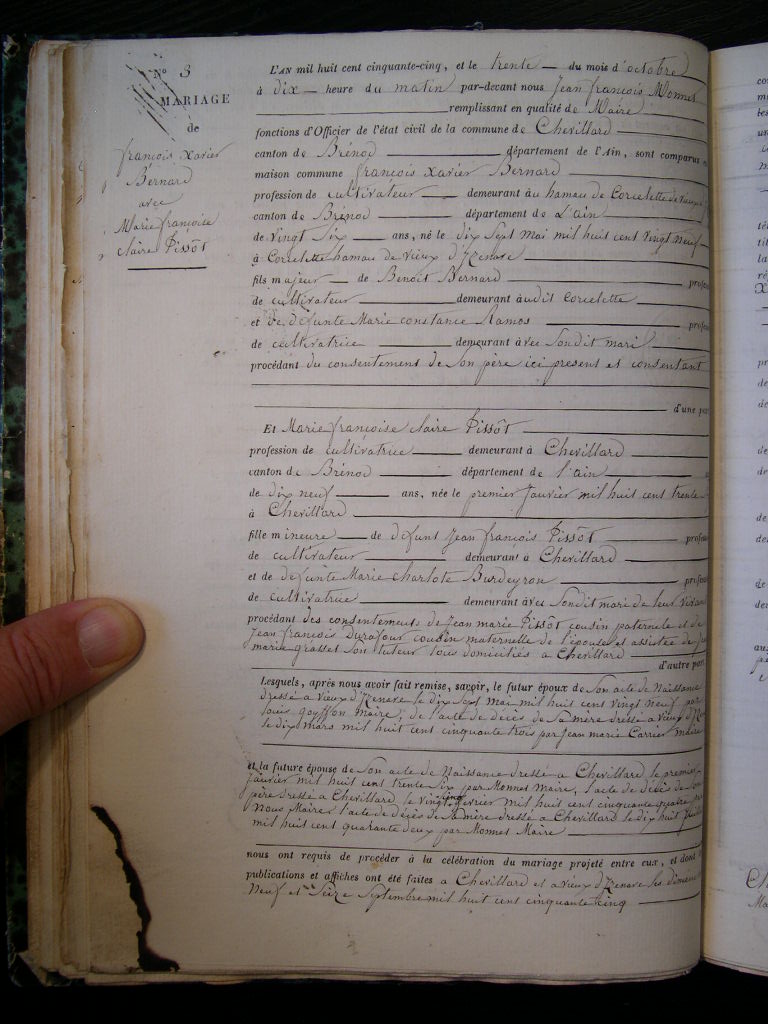 N° 3
MARIAGE
de
françois Xavier
Bernard
avec
Marie françoise
claire Pissot
L'AN mil huit cent cinquante-cinq, et le trente du mois d'octobre
à dix heure du matin par-devant nous Jean françois Monnet
remplissant en qualité de Maire
fonctions d'Officier de l'état civil de la commune de Chevillard
canton de Brénod département de l'Ain, sont comparus
maison commune françois Xavier Bernard
profession de cultivateur demeurant au hamau de Corcelette de vieux d'
canton de Brénod département de L'ain
de vingt Six ans, né le dix Sept Mai mil huit cent vingt neuf
à Corcelette hamau de Vieux d'Izenave
fils majeur de Benoit Bernard profes
de cultivateur demeurant audit Corcelette
et de defunte Marie constance Ramos profes
de cultivatrice demeurant avec Sondit mari
procédant du consentement de Son père ici present et consentant
d'une par
Et Marie françoise claire Pissot
profession de cultivatrice demeurant à Chevillard
canton de Brénod département de l'ain
de dix neuf ans, née le premier Janvier mil huit cent trente
à Chevillard
fille mineure de défunt Jean françois Pissot profess
de cultivateur demeurant à Chevillard
et de defunte Marie charlote Burdeyron profes
de cultivatrice demeurant avec Sondit mari de leur vivant
procédant des consentements de Jean marie Pissot cousin paternele et de
Jean françois Durafour cousin maternelle de l'épouse et assistée de
marie grasset Son tuteur tous domiciliés a Chevillard
d'autre part
Lesquels, après nous avoir fait remise, savoir, le futur époux de Son acte de Naissance
dressé a Vieux d'Izenave le dix Sept mai mil huit cent vingt neuf par
louis goyffon Maire, de l'acte de décès de Sa mère dressé a vieux d'Ize
le dix mars mil huit cent cinquante trois par Jean marie Carrier maire
et la future épouse de Son acte de Naissance dressé a Chevillard le premier
Janvier mil huit cent trente Six par Monnet Maire, l'acte de décès de Son
père dressé a Chevillard le vingt fevrier mil huit cent cinquante quatre par
Nous Maire l'acte de décès de Sa mère dressé a Chevillard le dix huit
mil huit cent quarante deux par Monnet Maire
nous ont requis de procéder à la célébration du mariage projeté entre eux, et dont
publications et affiches ont été faites a Chevillard et a vieux d'Izenave les dimanc
Neuf et Seize Septembre mil huit cent cinquante cinq